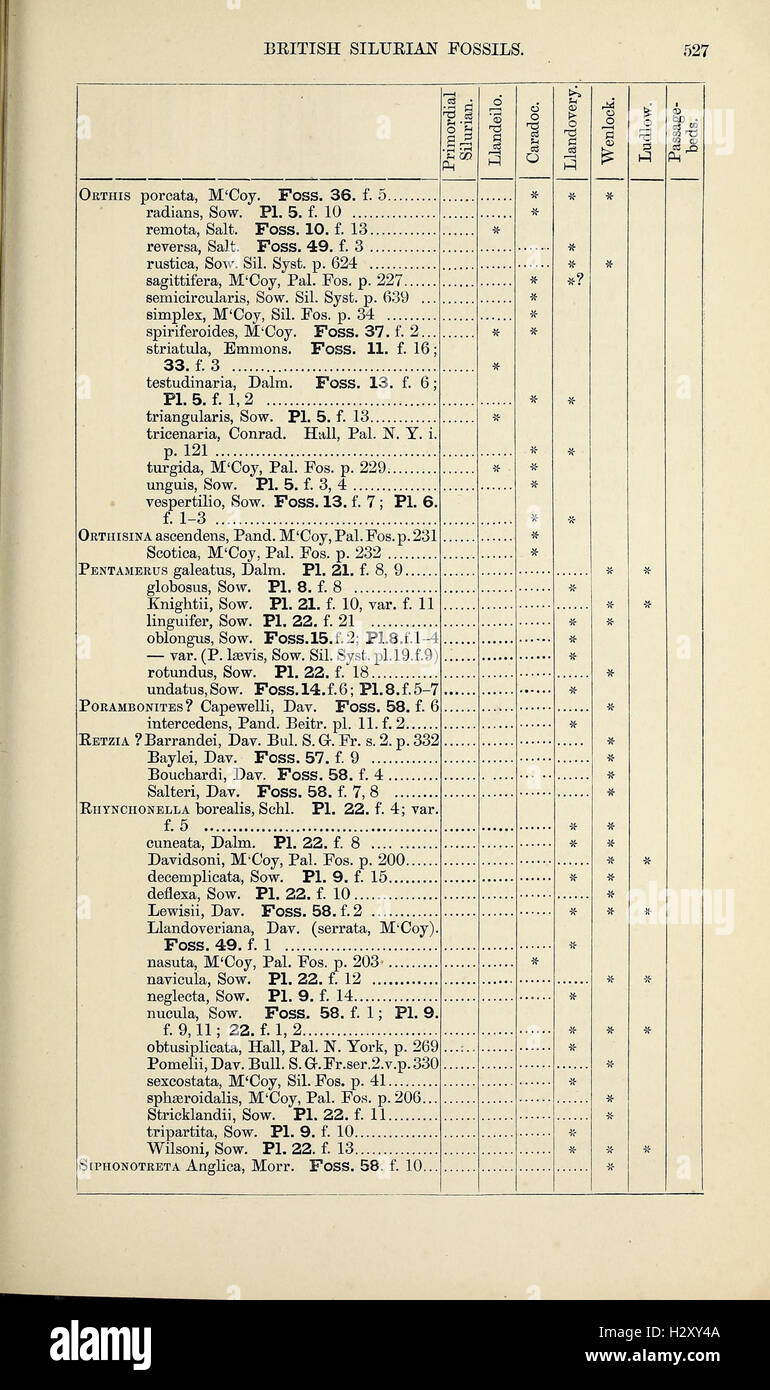 BRITISH SILURIAN FOSSILS. 527
Primordial Silurian. Llandeilo. Caradoc. Llandovery. Wenlock. Ludlow. Passage-beds.
ORTHIS porcata, M‘Coy. Foss. 36. f. 5......... ...... ...... * * *
radians, Sow. Pl. 5. f. 10 ............... ...... ...... *
remota, Salt. Foss. 10. f. 13............ ...... *
reversa, Salt. Foss. 49. f. 3 ............ ...... ...... ...... *
rustica, Sow. Sil. Syst. p. 624 ............ ...... ...... ...... * *
sagittifera, M‘Coy, Pal. Fos. p. 227...... ...... ...... * *?
semicircularis, Sow. Sil. Syst. p. 639 ... ...... ...... *
simplex, M‘Coy, Sil. Fos. p. 34 ......... ...... ...... *
spiriferoides, M‘Coy. Foss. 37. f. 2... ...... * *
striatula, Emmons. Foss. 11. f. 16;
33. f. 3 .................................... ...... *
testudinaria, Dalm. Foss. 13. f. 6;
Pl. 5. f. 1, 2 .............................. ...... ...... * *
triangularis, Sow. Pl. 5. f. 13............ ...... *
tricenaria, Conrad. Hall, Pal. N. Y. i.
p. 121 ....................................... ...... ...... * *
turgida, M‘Coy, Pal. Fos. p. 229......... ...... * *
unguis, Sow. Pl. 5. f. 3, 4 ............... ...... ...... *
vespertilio, Sow. Foss. 13. f. 7; Pl. 6.
f. 1–3 ....................................... ...... ...... * *
ORTHISINA ascendens, Pand. M‘Coy, Pal. Fos. p. 231 ...... ...... *
Scotica, M‘Coy, Pal. Fos. p. 232 ......... ...... ...... *
PENTAMERUS galeatus, Dalm. Pl. 21. f. 8, 9...... ...... ...... ...... ...... * *
globosus, Sow. Pl. 8. f. 8 ............... ...... ...... ...... *
Knightii, Sow. Pl. 21. f. 10, var. f. 11 ...... ...... ...... ...... * *
linguifer, Sow. Pl. 22. f. 21 ............ ...... ...... ...... * *
oblongus, Sow. Foss. 15. f. 2; Pl. 8. f. 1–4 ...... ...... ...... *
— var. (P. lævis, Sow. Sil. Syst. pl. 19. f. 9) ...... ...... ...... *
rotundus, Sow. Pl. 22. f. 18............ ...... ...... ...... ...... *
undatus, Sow. Foss. 14. f. 6; Pl. 8. f. 5–7 ...... ...... ...... *
PORAMBONITES? Capewelli, Dav. Foss. 58. f. 6 ...... ...... ...... ...... *
intercedens, Pand. Beitr. pl. 11. f. 2...... ...... ...... ...... *
RETZIA? Barrandei, Dav. Bul. S. G. Fr. s. 2. p. 332 ...... ...... ...... ..... *
Baylei, Dav. Foss. 57. f. 9 ............ ...... ...... ...... ...... *
Bouchardi, Dav. Foss. 58. f. 4......... ...... ...... ...... ...... *
Salteri, Dav. Foss. 58. f. 7, 8 ........ ...... ...... ...... ...... *
RHYNCHONELLA borealis, Schl. Pl. 22. f. 4; var.
f. 5 ....................................... ...... ...... ...... * *
cuneata, Dalm. Pl. 22. f. 8 ............ ...... ...... ...... * *
Davidsoni, M‘Coy, Pal. Fos. p. 200...... ...... ...... ...... ...... * *
decemplicata, Sow. Pl. 9. f. 15......... ...... ...... ...... * *
deflexa, Sow. Pl. 22. f. 10............... ...... ...... ...... ...... *
Lewisii, Dav. Foss. 58. f. 2 ............ ...... ...... ...... * * *
Llandoveriana, Dav. (serrata, M‘Coy).
Foss. 49. f. 1 ........................... ...... ...... ...... *
nasuta, M‘Coy, Pal. Fos. p. 203 ......... ...... ...... *
navicula, Sow. Pl. 22. f. 12 ............ ...... ...... ...... ...... * *
neglecta, Sow. Pl. 9. f. 14............... ...... ...... ...... *
nucula, Sow. Foss. 58. f. 1; Pl. 9.
f. 9, 11; 22. f. 1, 2........................ ...... ...... ...... * * *
obtusiplicata, Hall, Pal. N. York, p. 269 ...... ...... ...... *
Pomelii, Dav. Bull. S. G. Fr. ser. 2. v. p. 330 ...... ...... ...... ...... *
sexcostata, M‘Coy, Sil. Fos. p. 41......... ...... ...... ...... *
sphæroidalis, M‘Coy, Pal. Fos. p. 206... ...... ...... ...... ...... *
Stricklandii, Sow. Pl. 22. f. 11......... ...... ...... ...... ...... *
tripartita, Sow. Pl. 9. f. 10............... ...... ...... ...... *
Wilsoni, Sow. Pl. 22. f. 13............... ...... ...... ...... * * *
SIPHONOTRETA Anglica, Morr. Foss. 58. f. 10... ...... ...... ...... ...... *
alamy
alamy
alamy
Image ID: H2XY4A
www.alamy.com